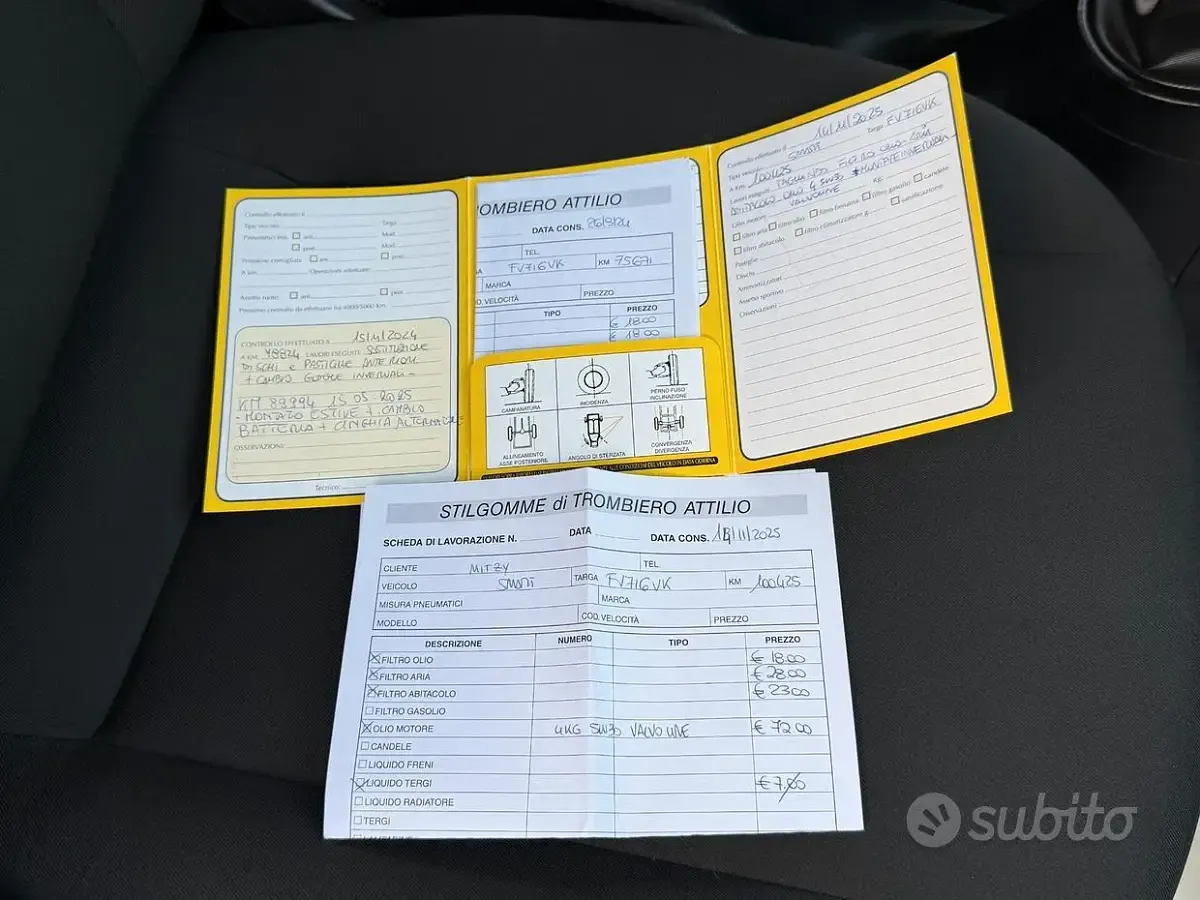 Controllo effettuato il
Tipo veicolo Targa
Pneumatici mis. ant. Mod.
post. Mod.
Pressione consigliata ant. post.
A km Operazioni effettuate
Assetto ruote ant. post.
Prossimo controllo da effettuare fra 4000/5000 km.
CONTROLLO EFFETTUATO A 15/4/2024
A KM. 78824 LAVORI ESEGUITI SOSTITUZIONE
DISCHI e PASTIGLIE ANTERIORI
+ CAMBIO GOMME INVERNALI -
KM 89994 15 05 2025
- MONTATO ESTIVE + CAMBIO
BATTERIA + CINGHIA ALTERNATORE
OSSERVAZIONI:
Tecnico:
OMBIERO ATTILIO
DATA CONS. 26/9/24
TEL.
FV716VK KM 75671
MARCA
OD. VELOCITÀ PREZZO
TIPO PREZZO
€ 18.00
€ 18.00
CAMPANATURA
INCIDENZA
PERNO FUSO INCLINAZIONE
ALLINEAMENTO ASSE POSTERIORE
ANGOLO DI STERZATA
CONVERGENZA DIVERGENZA
Controllo effettuato il 14/11/2025
Tipo veicolo SMART Targa FV716VK
A Km 100425
Lavori eseguiti TAGLIANDO FILTRO OLIO-ARIA
ABITACOLO-OLIO 4 5W30 + MONTATE INVERNALI -
Olio motore VALVOLINE KE
filtro aria filtro olio filtro benzina filtro gasolio candele
filtro abitacolo filtro climatizzatore sanificazione
Pastiglie
Dischi
Ammortizzatori
Assetto sportivo
Osservazioni
STILGOMME di TROMBIERO ATTILIO
SCHEDA DI LAVORAZIONE N. DATA DATA CONS. 14/11/2025
CLIENTE MITZY TEL.
VEICOLO SMART TARGA FV716VK KM 100425
MISURA PNEUMATICI MARCA
MODELLO COD. VELOCITÀ PREZZO
DESCRIZIONE NUMERO TIPO PREZZO
FILTRO OLIO € 18.00
FILTRO ARIA € 28.00
FILTRO ABITACOLO € 23.00
FILTRO GASOLIO
OLIO MOTORE 4KG 5W30 VALVOLINE € 72.00
CANDELE
LIQUIDO FRENI
LIQUIDO TERGI € 7.00
LIQUIDO RADIATORE
TERGI
subito